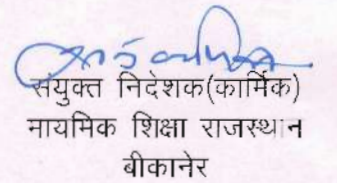 संयुक्त निदेशक(कार्मिक)
मायमिक शिक्षा राजस्थान
बीकानेर